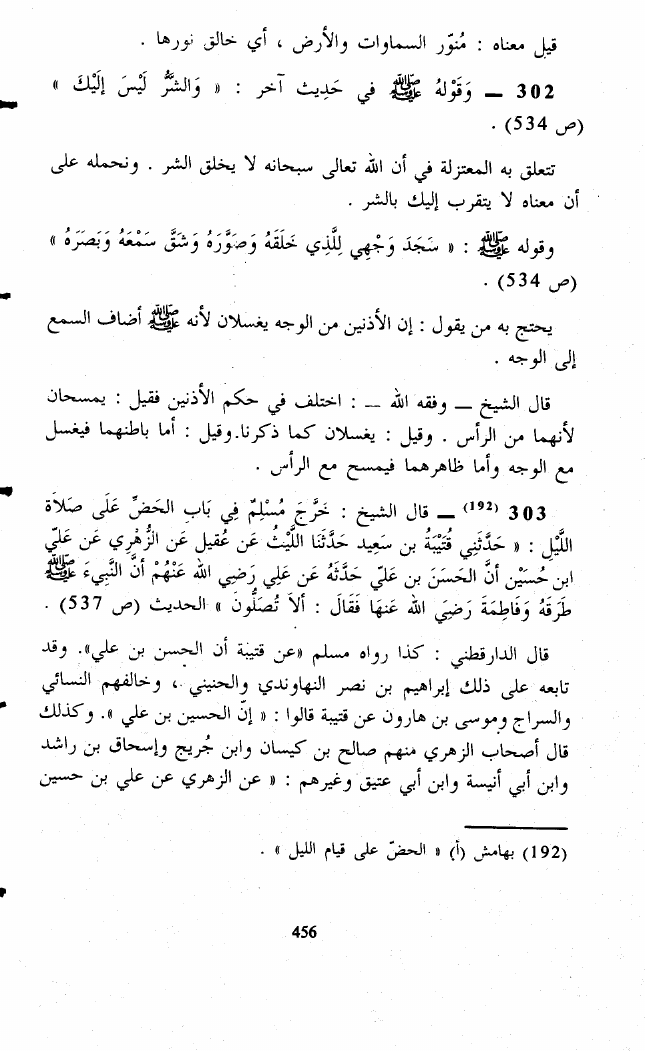 قيل معناه : مُنوّر السماوات والأرض ، أي خالق نورها .
302 ــ وَقَوْلهُ ﷺ في حَدِيث آخر : « وَالشرُّ لَيْسَ إلَيْكَ »
(ص 534) .
تتعلق به المعتزلة في أن الله تعالى سبحانه لا يخلق الشر . ونحمله على
أن معناه لا يتقرب إليك بالشر .
وقوله ﷺ : « سَجَدَ وَجْهِي لِلَّذِي خَلَقَهُ وَصَوَّرَهُ وَشَقَّ سَمْعَهُ وَبَصَرَهُ »
(ص 534) .
يحتج به من يقول : إن الأذنين من الوجه يغسلان لأنه ﷺ أضاف السمع
إلى الوجه .
قال الشيخ ــ وفقه الله ــ : اختلف في حكم الأذنين فقيل : يمسحان
لأنهما من الرأس . وقيل : يغسلان كما ذكرنا.وقيل : أما باطنهما فيغسل
مع الوجه وأما ظاهرهما فيمسح مع الرأس .
303 (192) ــ قال الشيخ : خَرَّجَ مُسْلِمٌ فِي بَاب الحَضِّ عَلَى صَلاَة
اللَّيْلِ : « حَدَّثَنِي قُتَيْبَةُ بن سَعِيد حَدَّثَنَا اللَّيْثُ عَن عُقيل عَن الزُّهْرِي عَن عَلِي
ابن حُسَيْن أنَّ الحَسَنَ بن عَلِي حَدَّثَهُ عَن عَلِي رَضِي الله عَنْهُمْ أنَّ النَّبِيءَ ﷺ
طَرَقَهُ وَفَاطِمَةَ رَضِيَ الله عَنهَا فَقَالَ : ألاَ تُصَلُّونَ » الحديث (ص 537) .
قال الدارقطني : كذا رواه مسلم «عن قتيبة أن الحسن بن علي». وقد
تابعه على ذلك إبراهيم بن نصر النهاوندي والحنيني ، وخالفهم النسائي
والسراج وموسى بن هارون عن قتيبة قالوا : « إنّ الحسين بن علي ». وكذلك
قال أصحاب الزهري منهم صالح بن كيسان وابن جُريج وإسحاق بن راشد
وابن أبي أنيسة وابن أبي عتيق وغيرهم : « عن الزهري عن علي بن حسين
(192) بهامش (أ) « الحضّ على قيام الليل » .
456